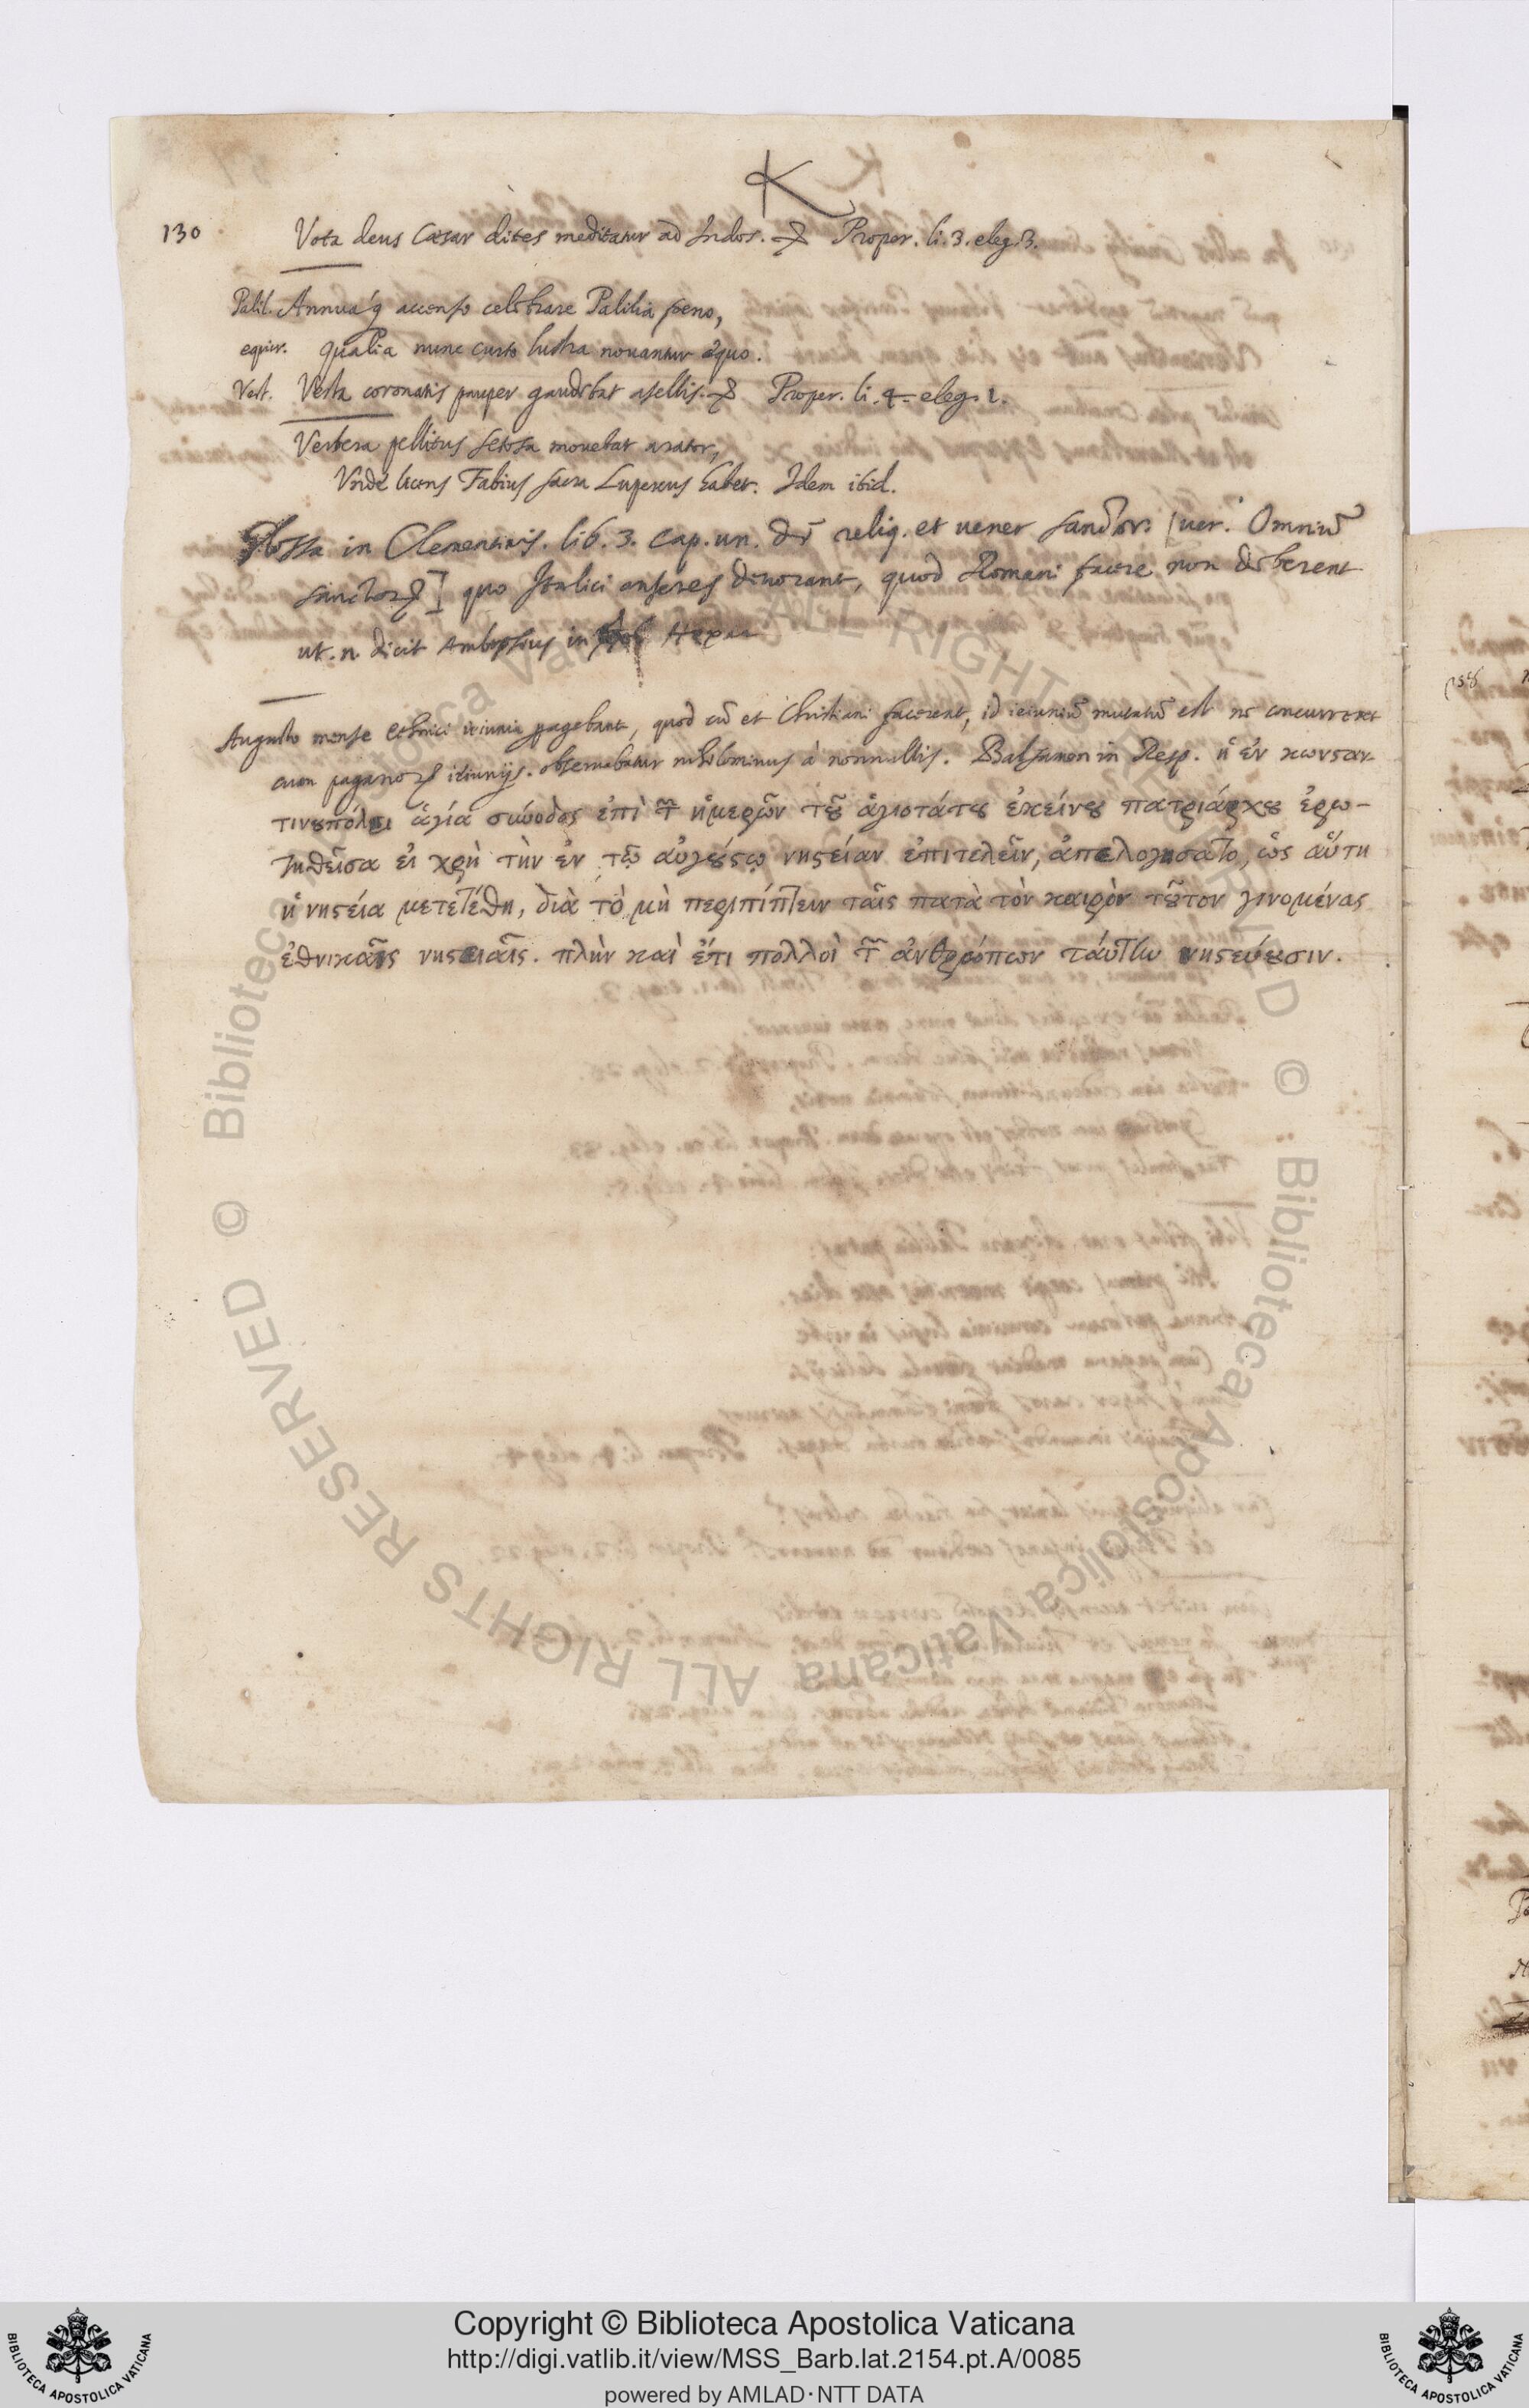 K
130 Vota deus Cæsar dites meditatur ad Indos. Proper. li. 3. eleg. 3.
Palil. Annuaq́ accenso celebrare Palilia foeno,
equir. qualia nunc curto lustra nouantur equo.
Vest. Vesta coronatis pauper gaudebat asellis. Proper. li. 4. eleg. 1.
Verbera pellitus setosa mouebat arator,
Vnde licens Fabius sacra Lupercus habet. Idem ibid.
Glossa in Clementinis. lib. 3. cap. un. de relig. et uener sanctor. uer. Omniū
sanctor. quo Italici anseres deuorant, quod Romani facere non deberent
ut. n. dicit Ambrosius in Hexae
Augusto mense ethnici ieiunia pagebant, quod cū et Christiani facerent, id ieiuniū mutatū est ne concurreret
cum paganor. ieiunijs. obseruabatur nihilominus à nonnullis. Balsamon in Resp. ἡ ἐν κωνσαν-
τινουπόλει ἁγία σύνοδος ἐπὶ τῶν ἡμερῶν τοῦ ἁγιοτάτου ἐκείνου πατριάρχου ἐρω-
τηθεῖσα εἰ χρὴ τὴν ἐν τῷ αὐγούστῳ νηστείαν ἐπιτελεῖν, ἀπελογήσατο, ὡς αὕτη
ἡ νηστεία μετετέθη, διὰ τὸ μὴ περιπίπτειν ταῖς κατὰ τὸν καιρὸν τοῦτον γινομένας
ἐθνικαῖς νηστείαῖς. πλὴν καὶ ἔτι πολλοὶ τῶν ἀνθρώπων ταύτην νηστεύουσιν.
© Biblioteca Apostolica Vaticana ALL RIGHTS RESERVED © Biblioteca Apostolica Vaticana ALL RIGHTS RESERVED
Copyright © Biblioteca Apostolica Vaticana
http://digi.vatlib.it/view/MSS_Barb.lat.2154.pt.A/0085
powered by AMLAD·NTT DATA
BIBLIOTECA APOSTOLICA VATICANA
BIBLIOTECA APOSTOLICA VATICANA